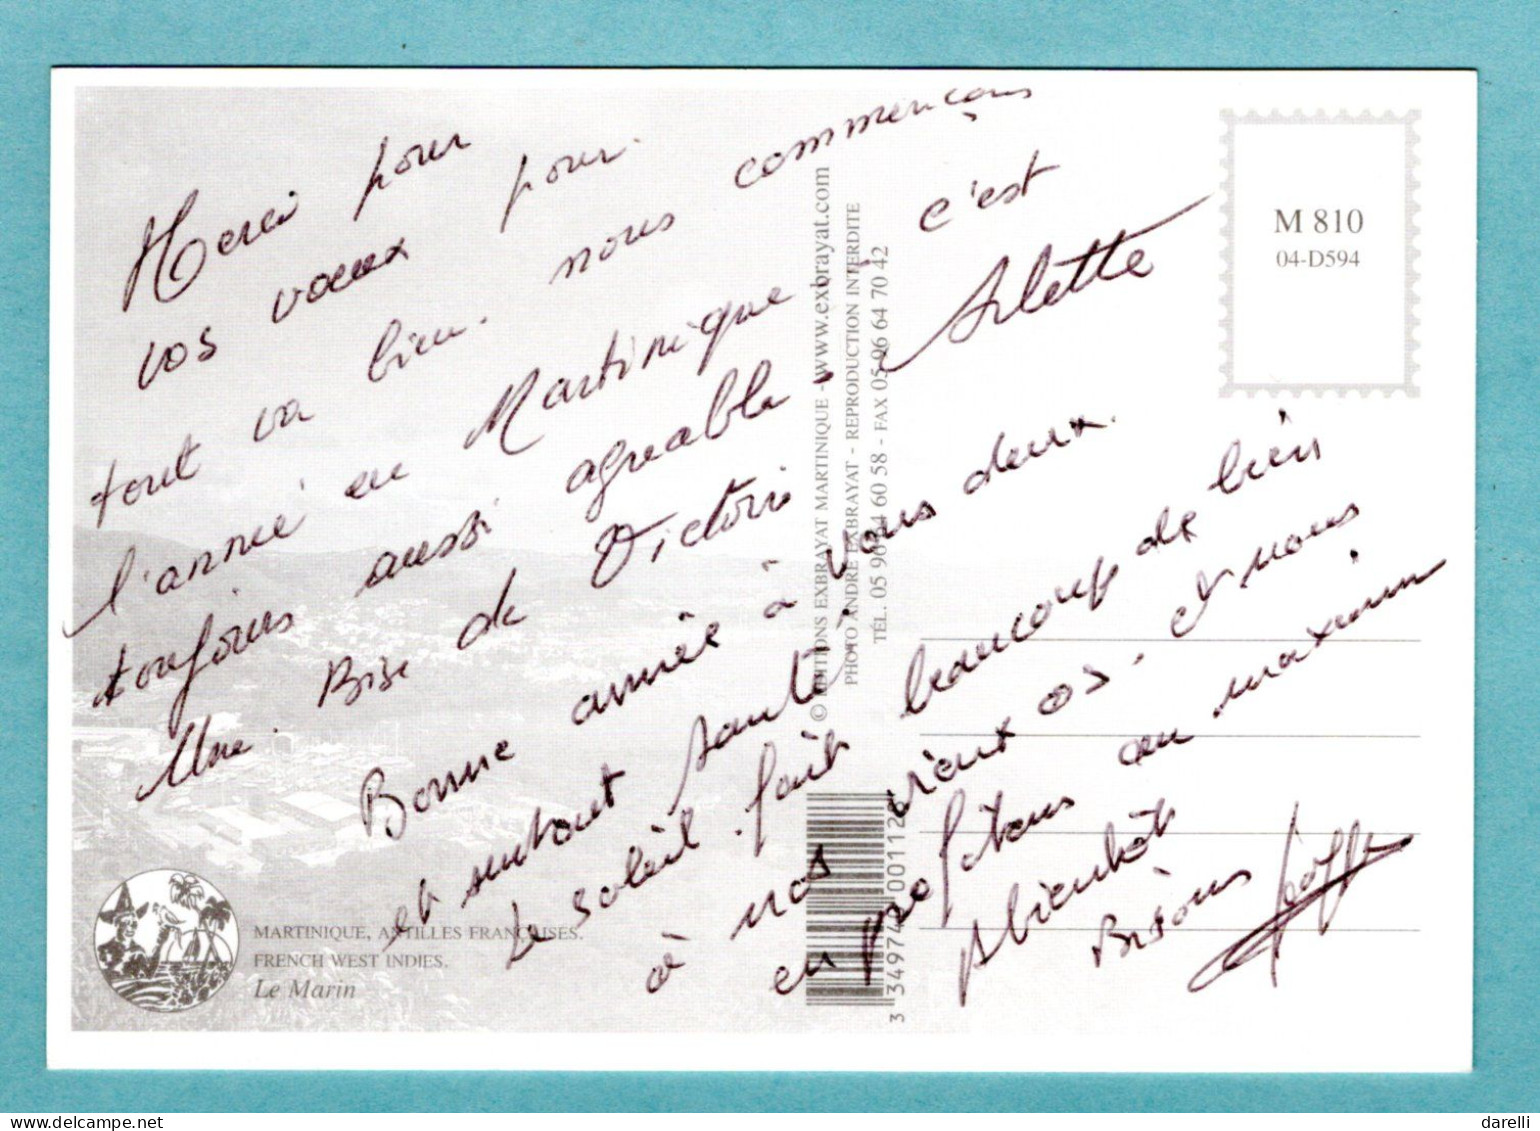 Merci pour
vos vœux pour
tout va bien. nous commençons
l'année en Martinique c'est
toujours aussi agréable - Arlette
Une Bise de Victoria
Bonne année à vous deux.
et surtout santé,
Le soleil fait beaucoup de bien
à nos vieux os. et nous
en profitons au maximum
A bientôt
Bisous
M 810
04-D594
© EDITIONS EXBRAYAT MARTINIQUE - www.exbrayat.com
PHOTO ANDRÉ EXBRAYAT - REPRODUCTION INTERDITE
TÉL. 05 96 64 60 58 - FAX 05 96 64 70 42
MARTINIQUE, ANTILLES FRANÇAISES.
FRENCH WEST INDIES.
Le Marin
darelli